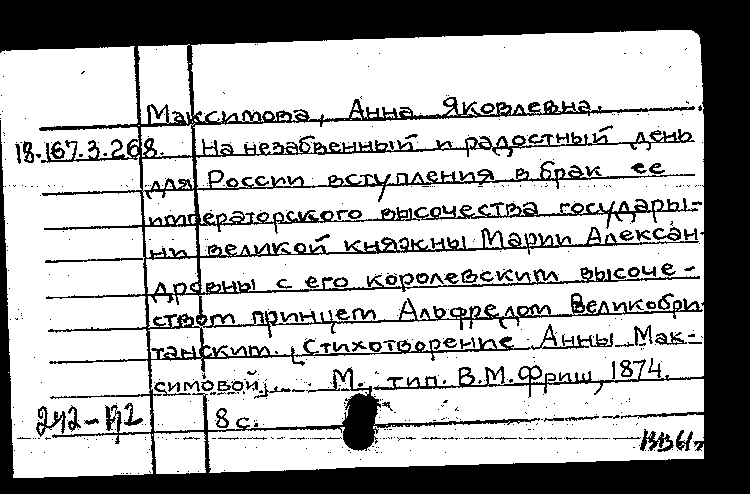 Максимова, Анна Яковлевна.
18.167.3.268. На незабвенный и радостный день
для России вступления в брак ее
императорского высочества государы-
ни великой княжны Марии Алексан-
дровны с его королевским высоче-
ством принцем Альфредом Великобри-
танским. Стихотворение Анны Мак-
симовой. М., тип. В.М. Фриш, 1874.
8 с.